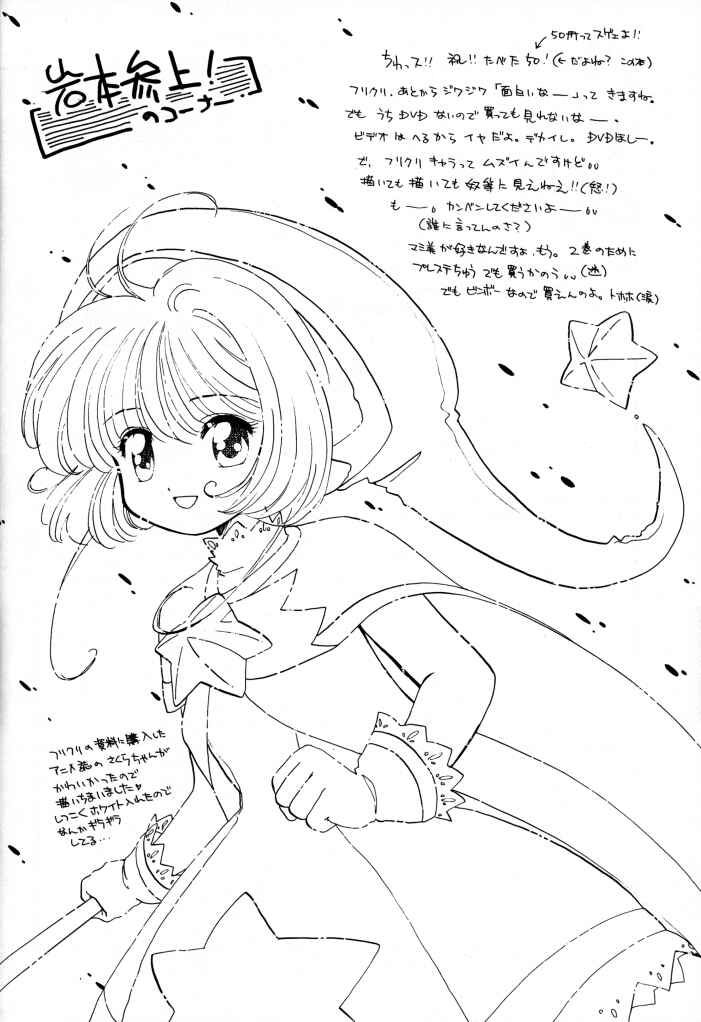 岩本参上!
のコーナー
50冊ってスゲェよ!!
ちわっス!! 祝!! たべた50!(←だよね? この本)
フリクリ、あとからジワジワ「面白いなー」って きますね。
でも うち DVD ないので買っても見れないなー。
ビデオは へるから イヤだよ。デカイし。DVDほしー。
で、フリクリ キャラって ムズイんですけど。。
描いても描いても 奴等に見えねえ!!(怒!)
もー。カンベンしてくださいよー。。
(誰に言ってんのさ?)
マミ美が好きなんですよ、もう。2巻のために
プレステちゅう でも買うかのう。。(迷)
でも ビンボーなので買えんのよ。トホホ(涙)
フリクリの資料に購入した
アニメ誌の さくらちゃんが
かわいかったので
描いちまいました♥
しつこくホワイト入れたので
なんかギラギラ
してる…